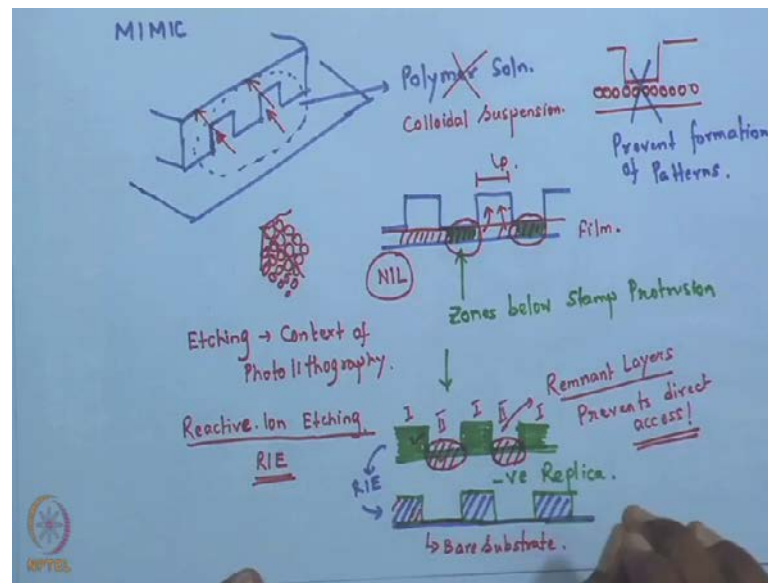 MIMIC
Polymer Soln.
Colloidal Suspension.
Prevent formation
of Patterns.
lp.
film.
NIL
Zones below Stamp Protrusion
Etching → Context of
Photolithography.
Reactive-Ion Etching.
RIE
Remnant Layers
Prevents direct
access!
I II I II I
RIE
-ve Replica.
↳ Bare Substrate.
NPTEL